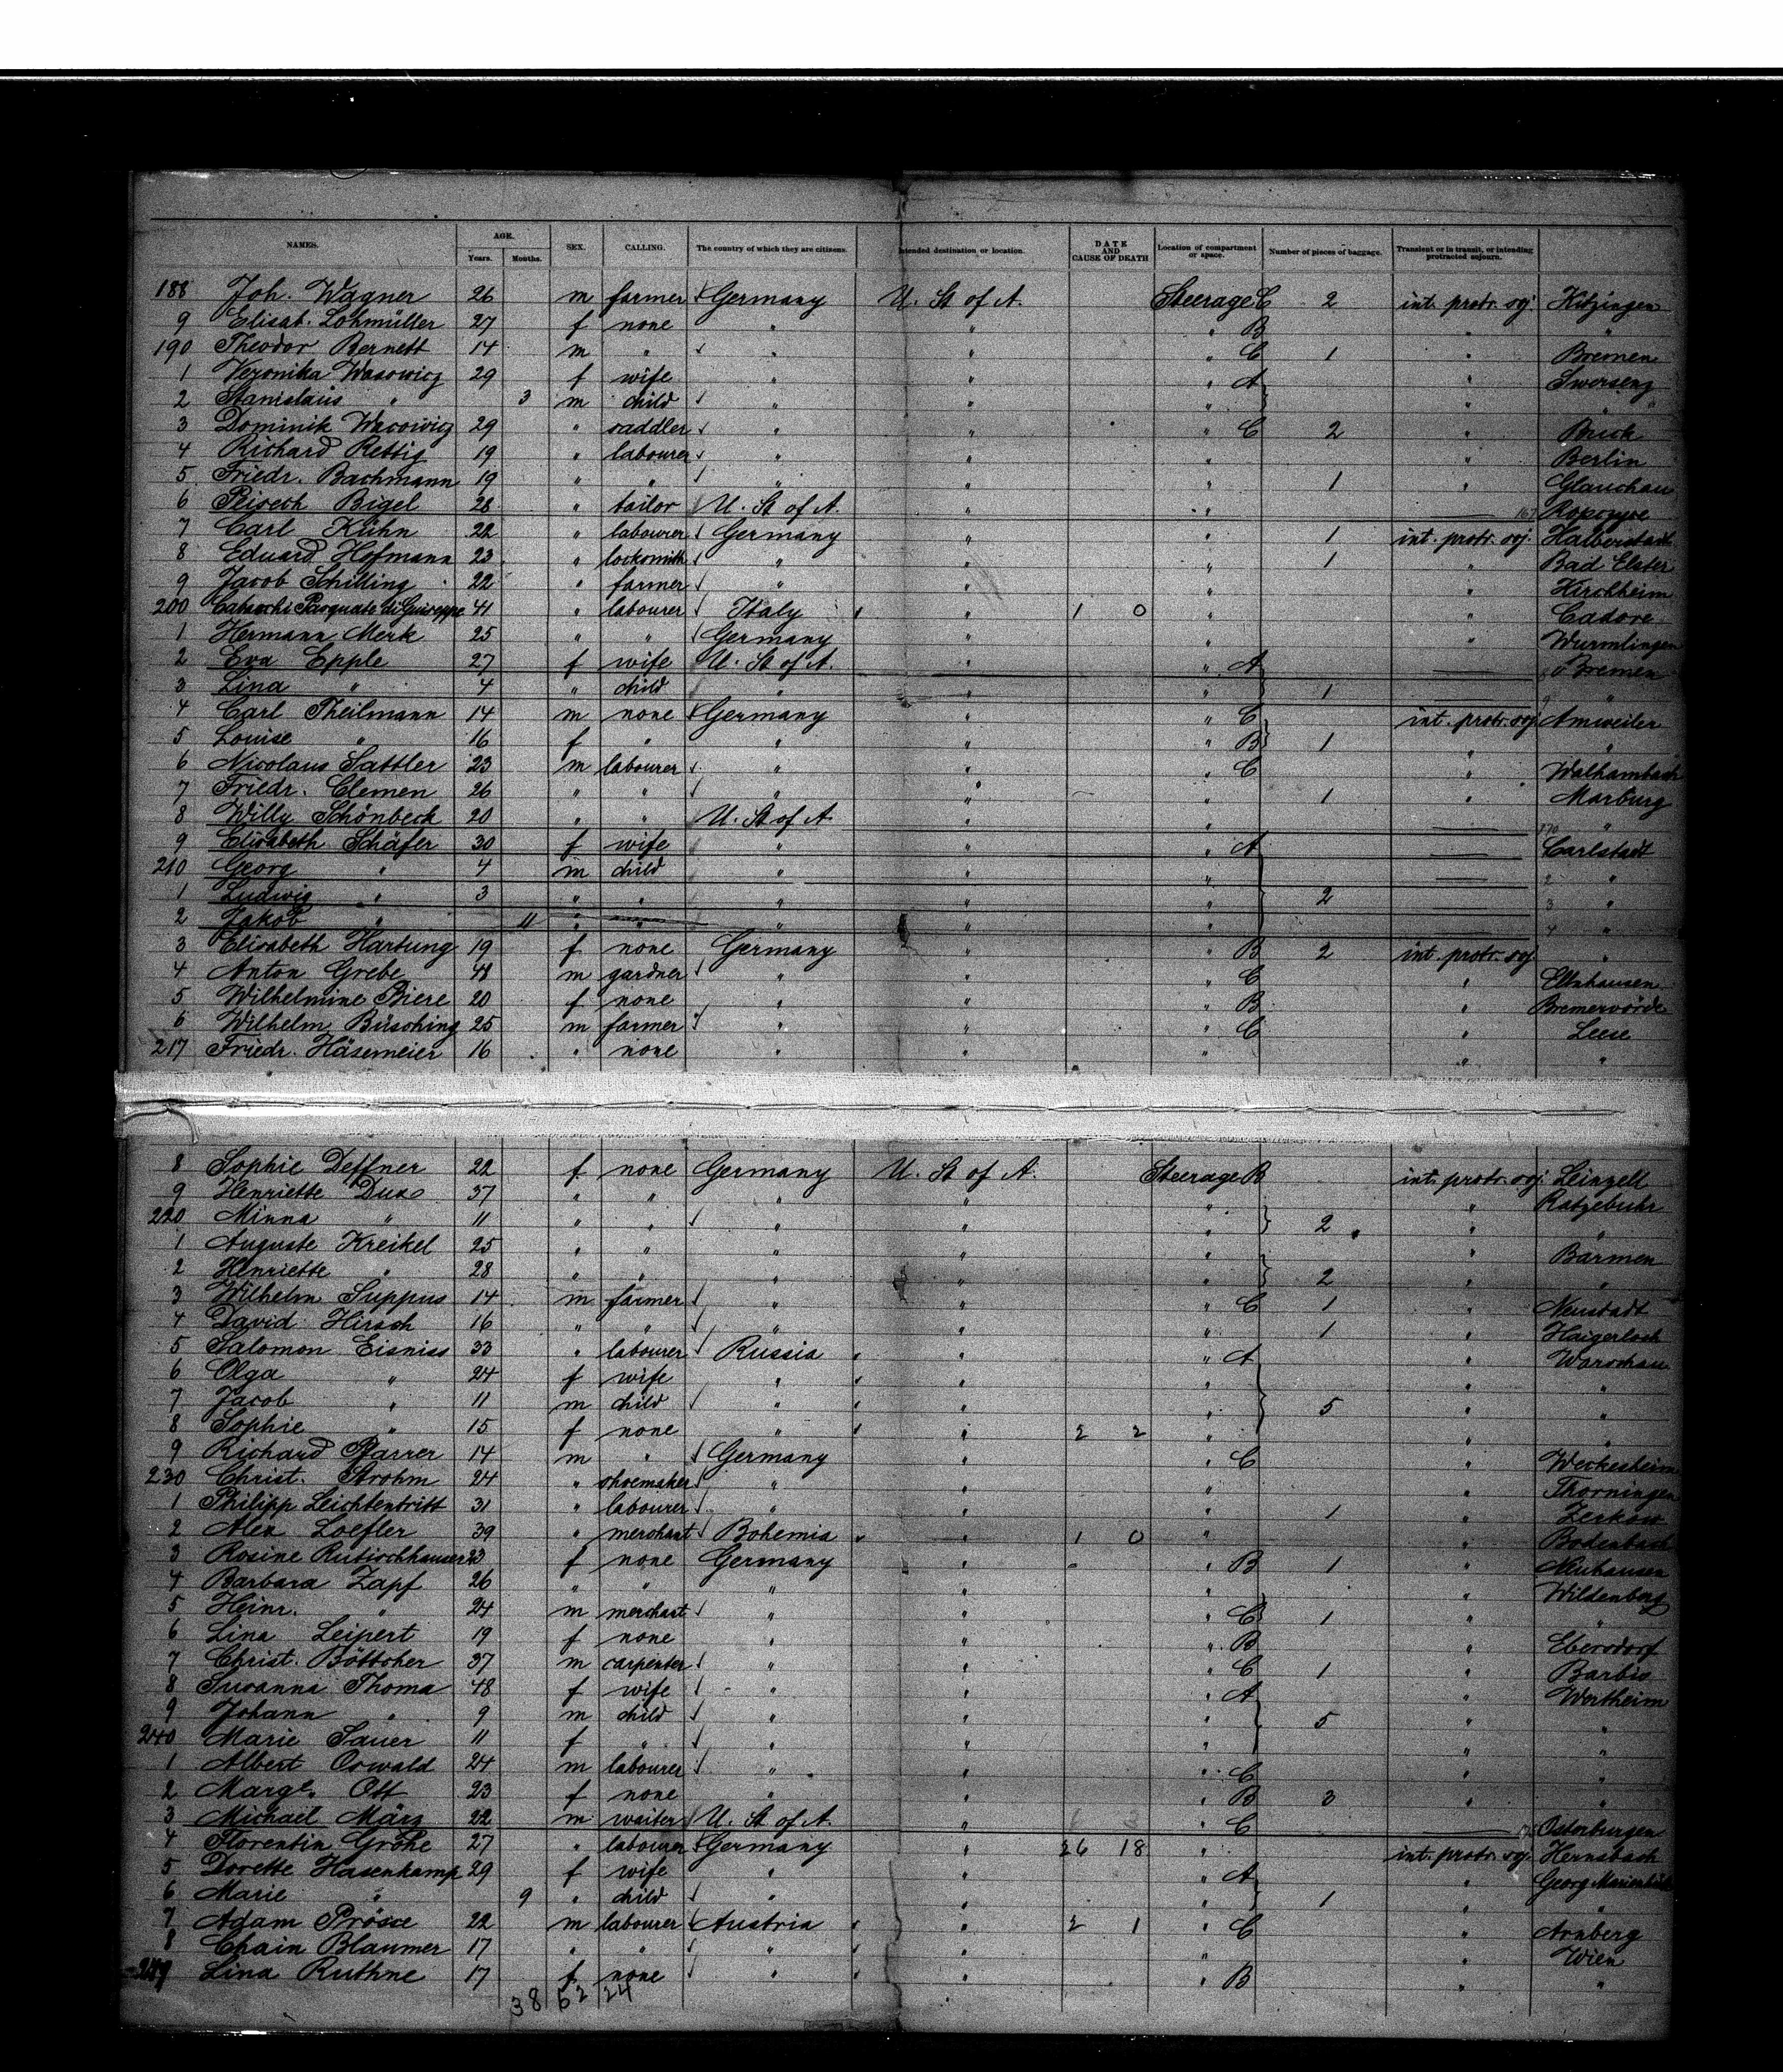 NAMES. AGE. SEX. CALLING. The country of which they are citizens. Intended destination or location. DATE AND CAUSE OF DEATH Location of compartment or space. Number of pieces of baggage. Transient or in transit, or intending protracted sojourn.
Years. Months.
188 Joh. Wagner 26 m farmer Germany U. St of A. Steerage C 2 int. protr. soj. Kitzingen
9 Elisab. Lohmüller 27 f none " " " B " "
190 Theodor Bernett 14 m " " " " C 1 " Bremen
1 Veronika Wasowicz 29 f wife " " " A " Swerseng
2 Stanislaus " 3 m child " " " " "
3 Dominik Wacowicz 29 " saddler " " " C 2 "
4 Richard Rettig 19 " labourer " " " " Berlin
5 Friedr. Bachmann 19 " " " " " 1 " Glauchau
6 Bigel 28 " tailor U. St of A. " " 167
7 Carl Kühn 22 " labourer Germany " " 1 int. protr. soj. Halberstadt
8 Eduard Hofmann 23 " locksmith " " " 1 " Bad Elster
9 Jacob Schilling 22 " farmer " " " " Kirchheim
200 Pasquale di Guiseppe 41 " labourer Italy " 1 0 " " Cadore
1 Hermann Merk 25 " " Germany " " " Wurmlingen
2 Eva Epple 27 f wife U. St of A. " " A Bremen
3 Lina " 4 " child " " " 1 "
4 Carl Theilmann 14 m none Germany " " C int. protr. soj. Amweiler
5 Louise " 16 f " " " " B 1 " "
6 Nicolaus Sattler 23 m labourer " " " C " Walhambach
7 Friedr. Clemen 26 " " " " " 1 " Marburg
8 Willy Schönbeck 20 " " U. St of A. " " 170 "
9 Elisabeth Schäfer 30 f wife " " " A Carlstadt
210 Georg " 4 m child " " " 2 "
1 Ludwig " 3 " " " " " 2 3 "
2 Jakob " 11 " " " " " 4 "
3 Elisabeth Hartung 19 f none Germany " " B 2 int. protr. soj. "
4 Anton Grebe 48 m gardner " " " C " Elnhausen
5 Wilhelmine Biere 20 f none " " " B " Bremervörde
6 Wilhelm Büsching 25 m farmer " " " C " Leese
217 Friedr. Häsemeier 16 " none " " " " "
8 Sophie Deffner 22 f none Germany U. St of A. Steerage B int. protr. soj. Leinzell
9 Henriette Dux 37 " " " " " " Ratzebuhr
220 Minna " 11 " " " " " 2 " "
1 Auguste Kreikel 25 " " " " " " Barmen
2 Henriette " 28 " " " " " 2 " "
3 Wilhelm Suppus 14 m farmer " " " C 1 " Neustadt
4 David Hirsch 16 " " " " " 1 " Haigerloch
5 Salomon Eisniss 33 " labourer Russia " " A " Warschau
6 Olga " 24 f wife " " " " "
7 Jacob " 11 m child " " " 5 " "
8 Sophie " 15 f none " " 2 2 " " "
9 Richard Pfarrer 14 m " Germany " " C " Weckesheim
230 Christ. Strohm 24 " shoemaker " " " " Thorningen
1 Philipp Leichtentritt 31 " labourer " " " 1 " Zerkow
2 Alex Loefler 39 " merchant Bohemia " 1 0 " " Bodenbach
3 Rosine Rutischhauser 23 f none Germany " " B 1 " Neuhausen
4 Barbara Zapf 26 " " " " " " Wildenberg
5 Heinr. " 24 m merchant " " " C 1 " "
6 Lina Leipert 19 f none " " " B " Ebersdorf
7 Christ. Böttcher 37 m carpenter " " " C 1 " Barbis
8 Susanna Thoma 48 f wife " " " A " Wertheim
9 Johann " 9 m child " " " 5 " "
240 Marie Sauer 11 f " " " " " "
1 Albert Oswald 24 m labourer " " " C " "
2 Marge. Ott 23 f none " " " B 3 " "
3 Michael März 22 m waiter U. St of A. " " C 175 Osterburgen
4 Florentin Gröhe 27 " labourer Germany " 26 18 " int. protr. soj. Hernsbach
5 Dorette Hasenkamp 29 f wife " " " A " Georg Marienhütte
6 Marie " 9 " child " " " 1 " "
7 Adam Prösse 22 m labourer Austria " 2 1 " C " Arnberg
8 Chain Blaumer 17 " " " " " " Wien
249 Lina Ruthne 17 f none " " " B " "
38 62 24